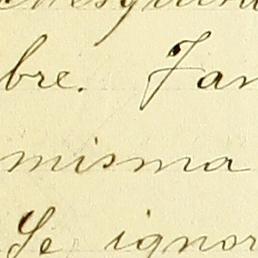 bre. Jan
misma
Se ignor